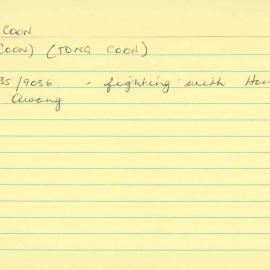 COON
COON) (TONG COON)
35/9036. - fighting with Hon
Awong